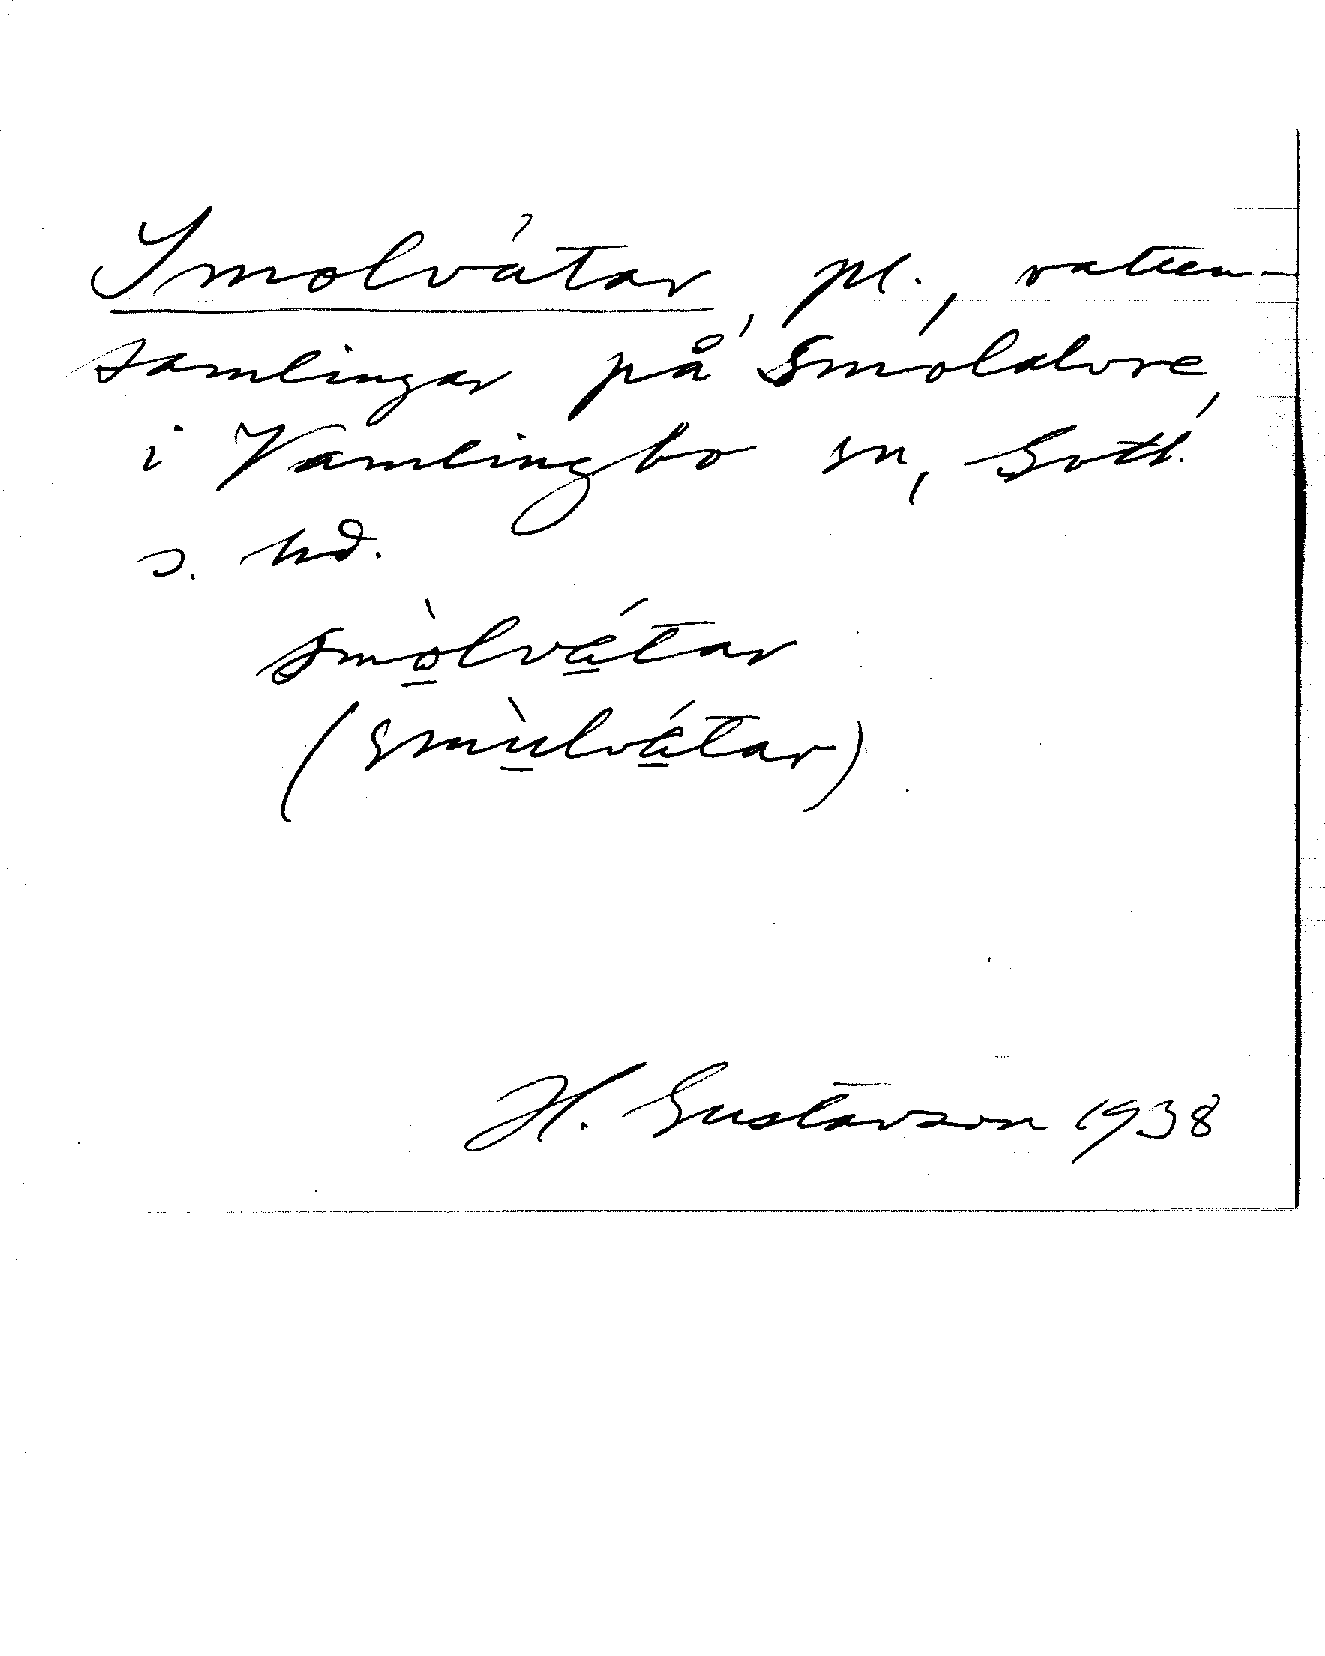 Smolvåtar, pl., vatten-
samlingar på Smolalvre,
i Vamlingbo sn, Gotl.
s. hd.
smòlvátar
(smùlvátar)
H. Gustavson 1938